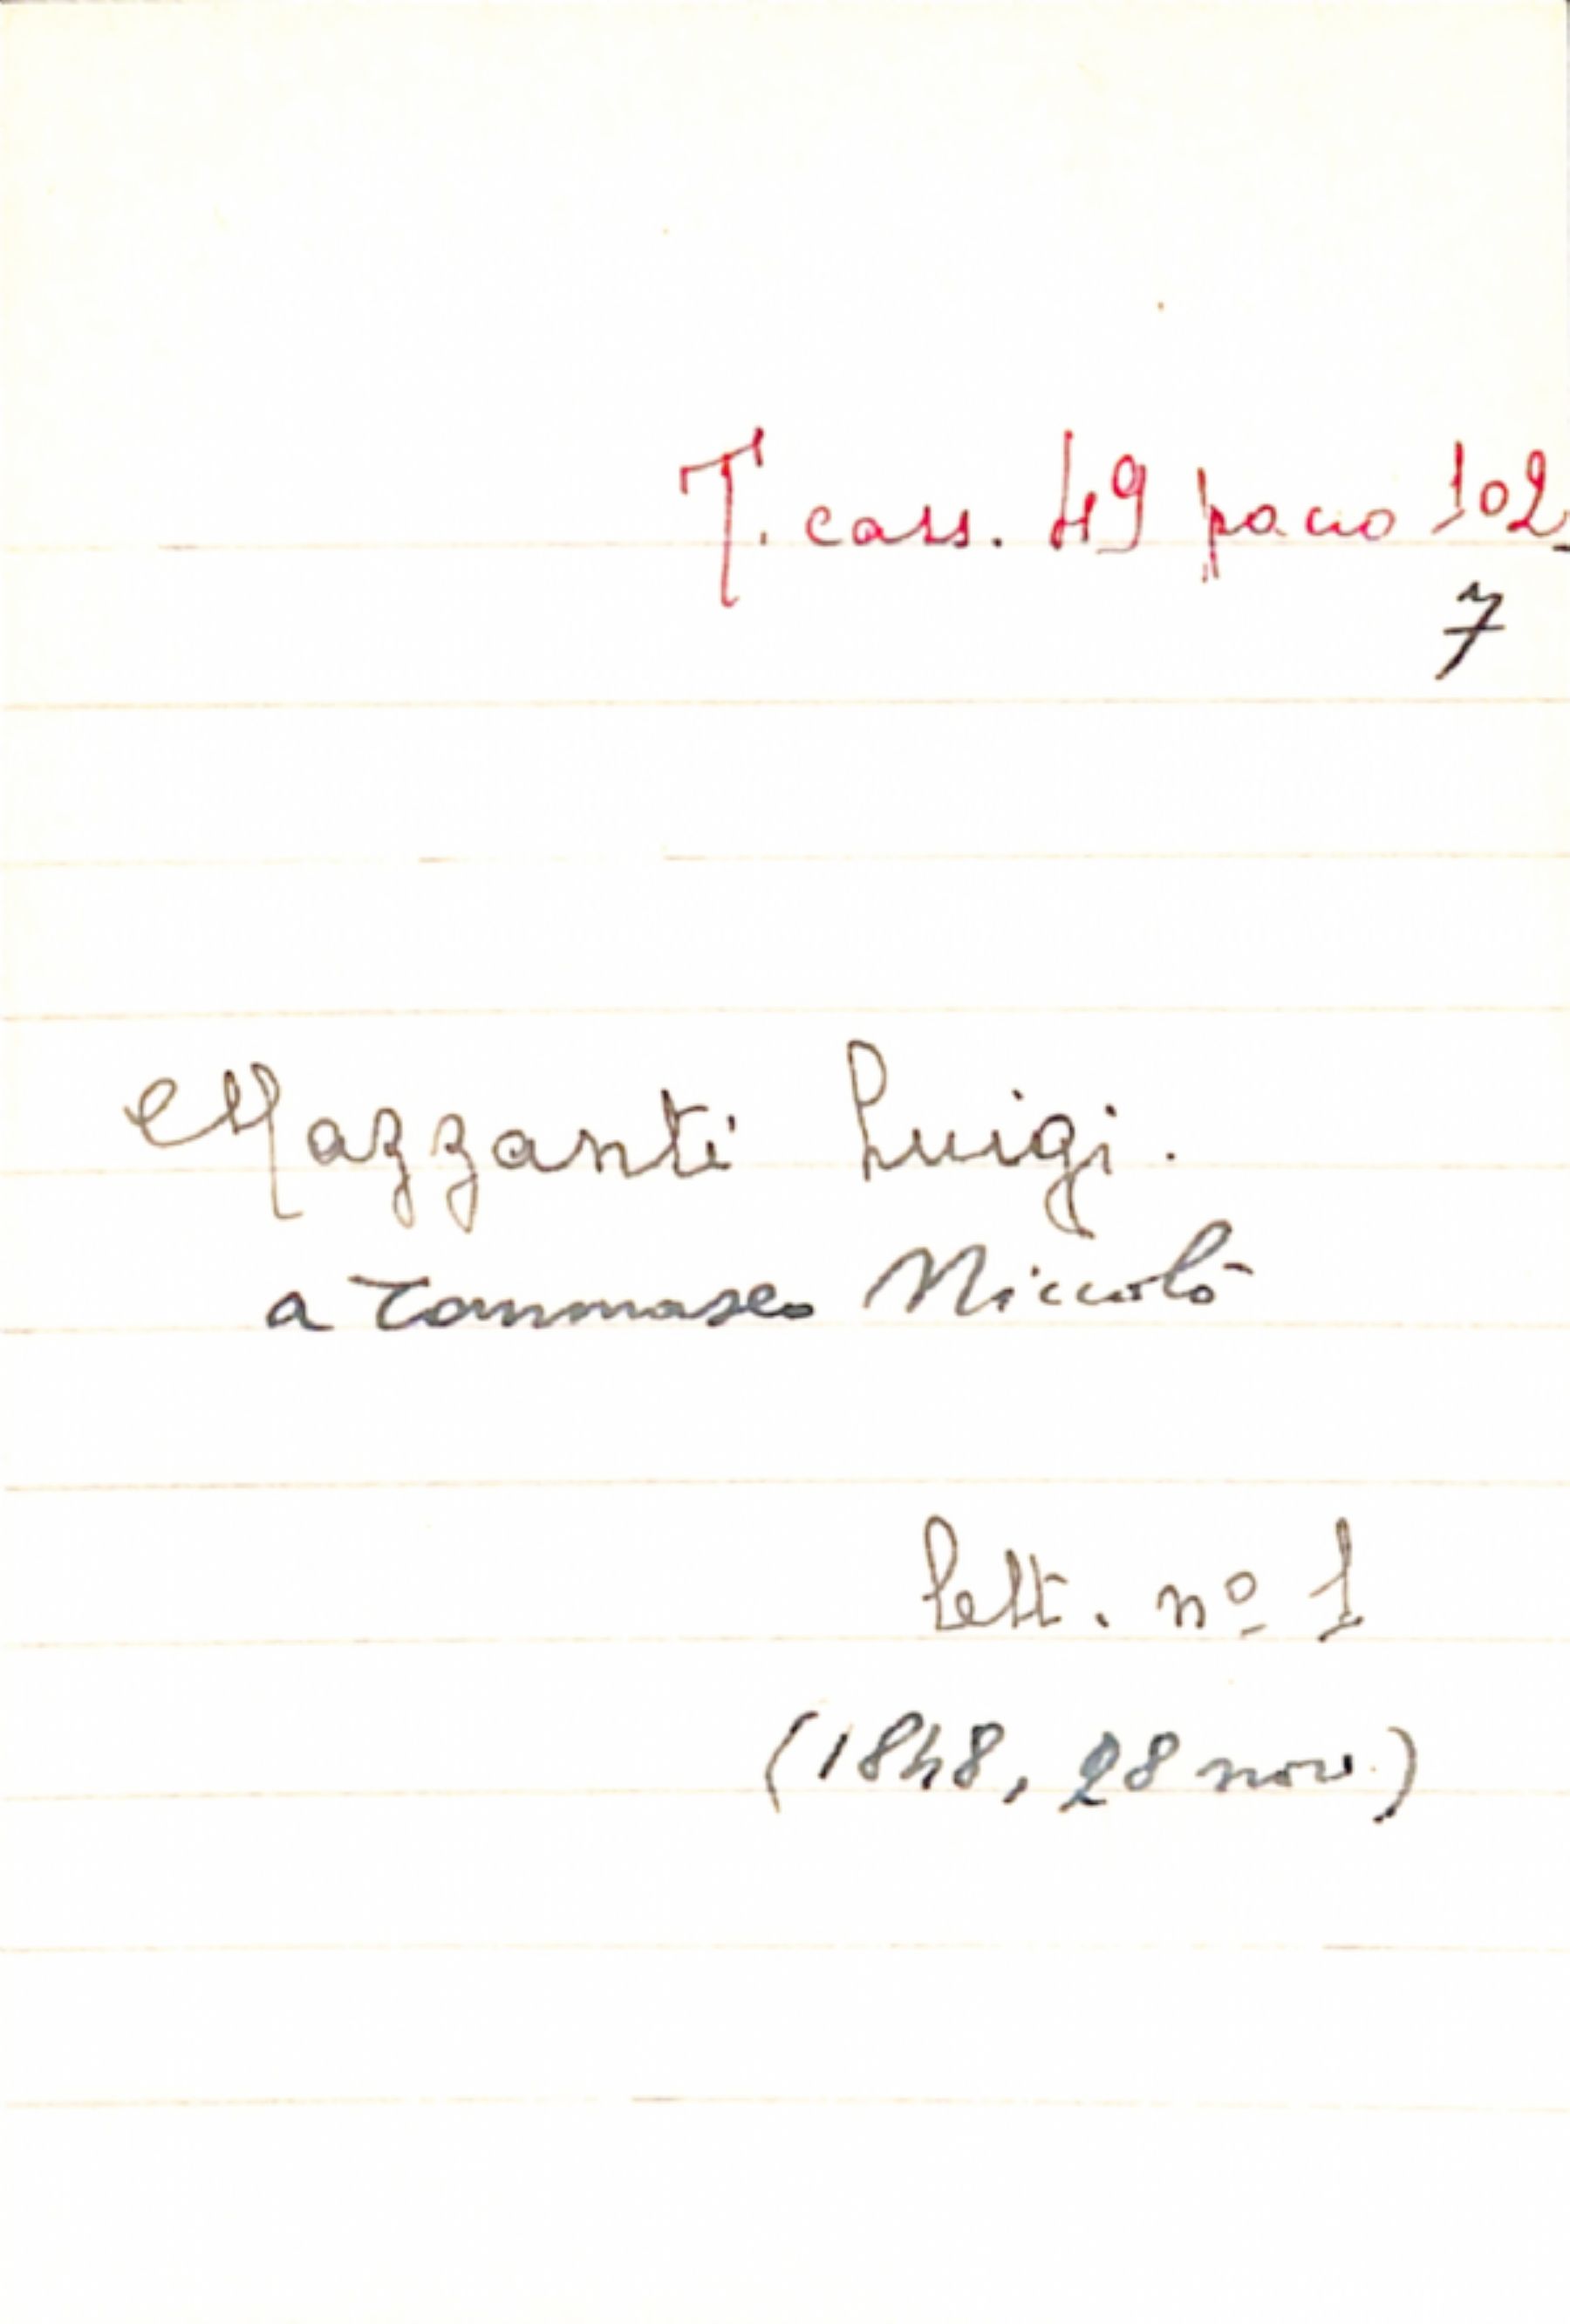 T. cass. 49 pacco 102.
7
Mazzanti Luigi.
a Tommaseo Niccolò
lett. nº 1
(1848, 28 nov.)